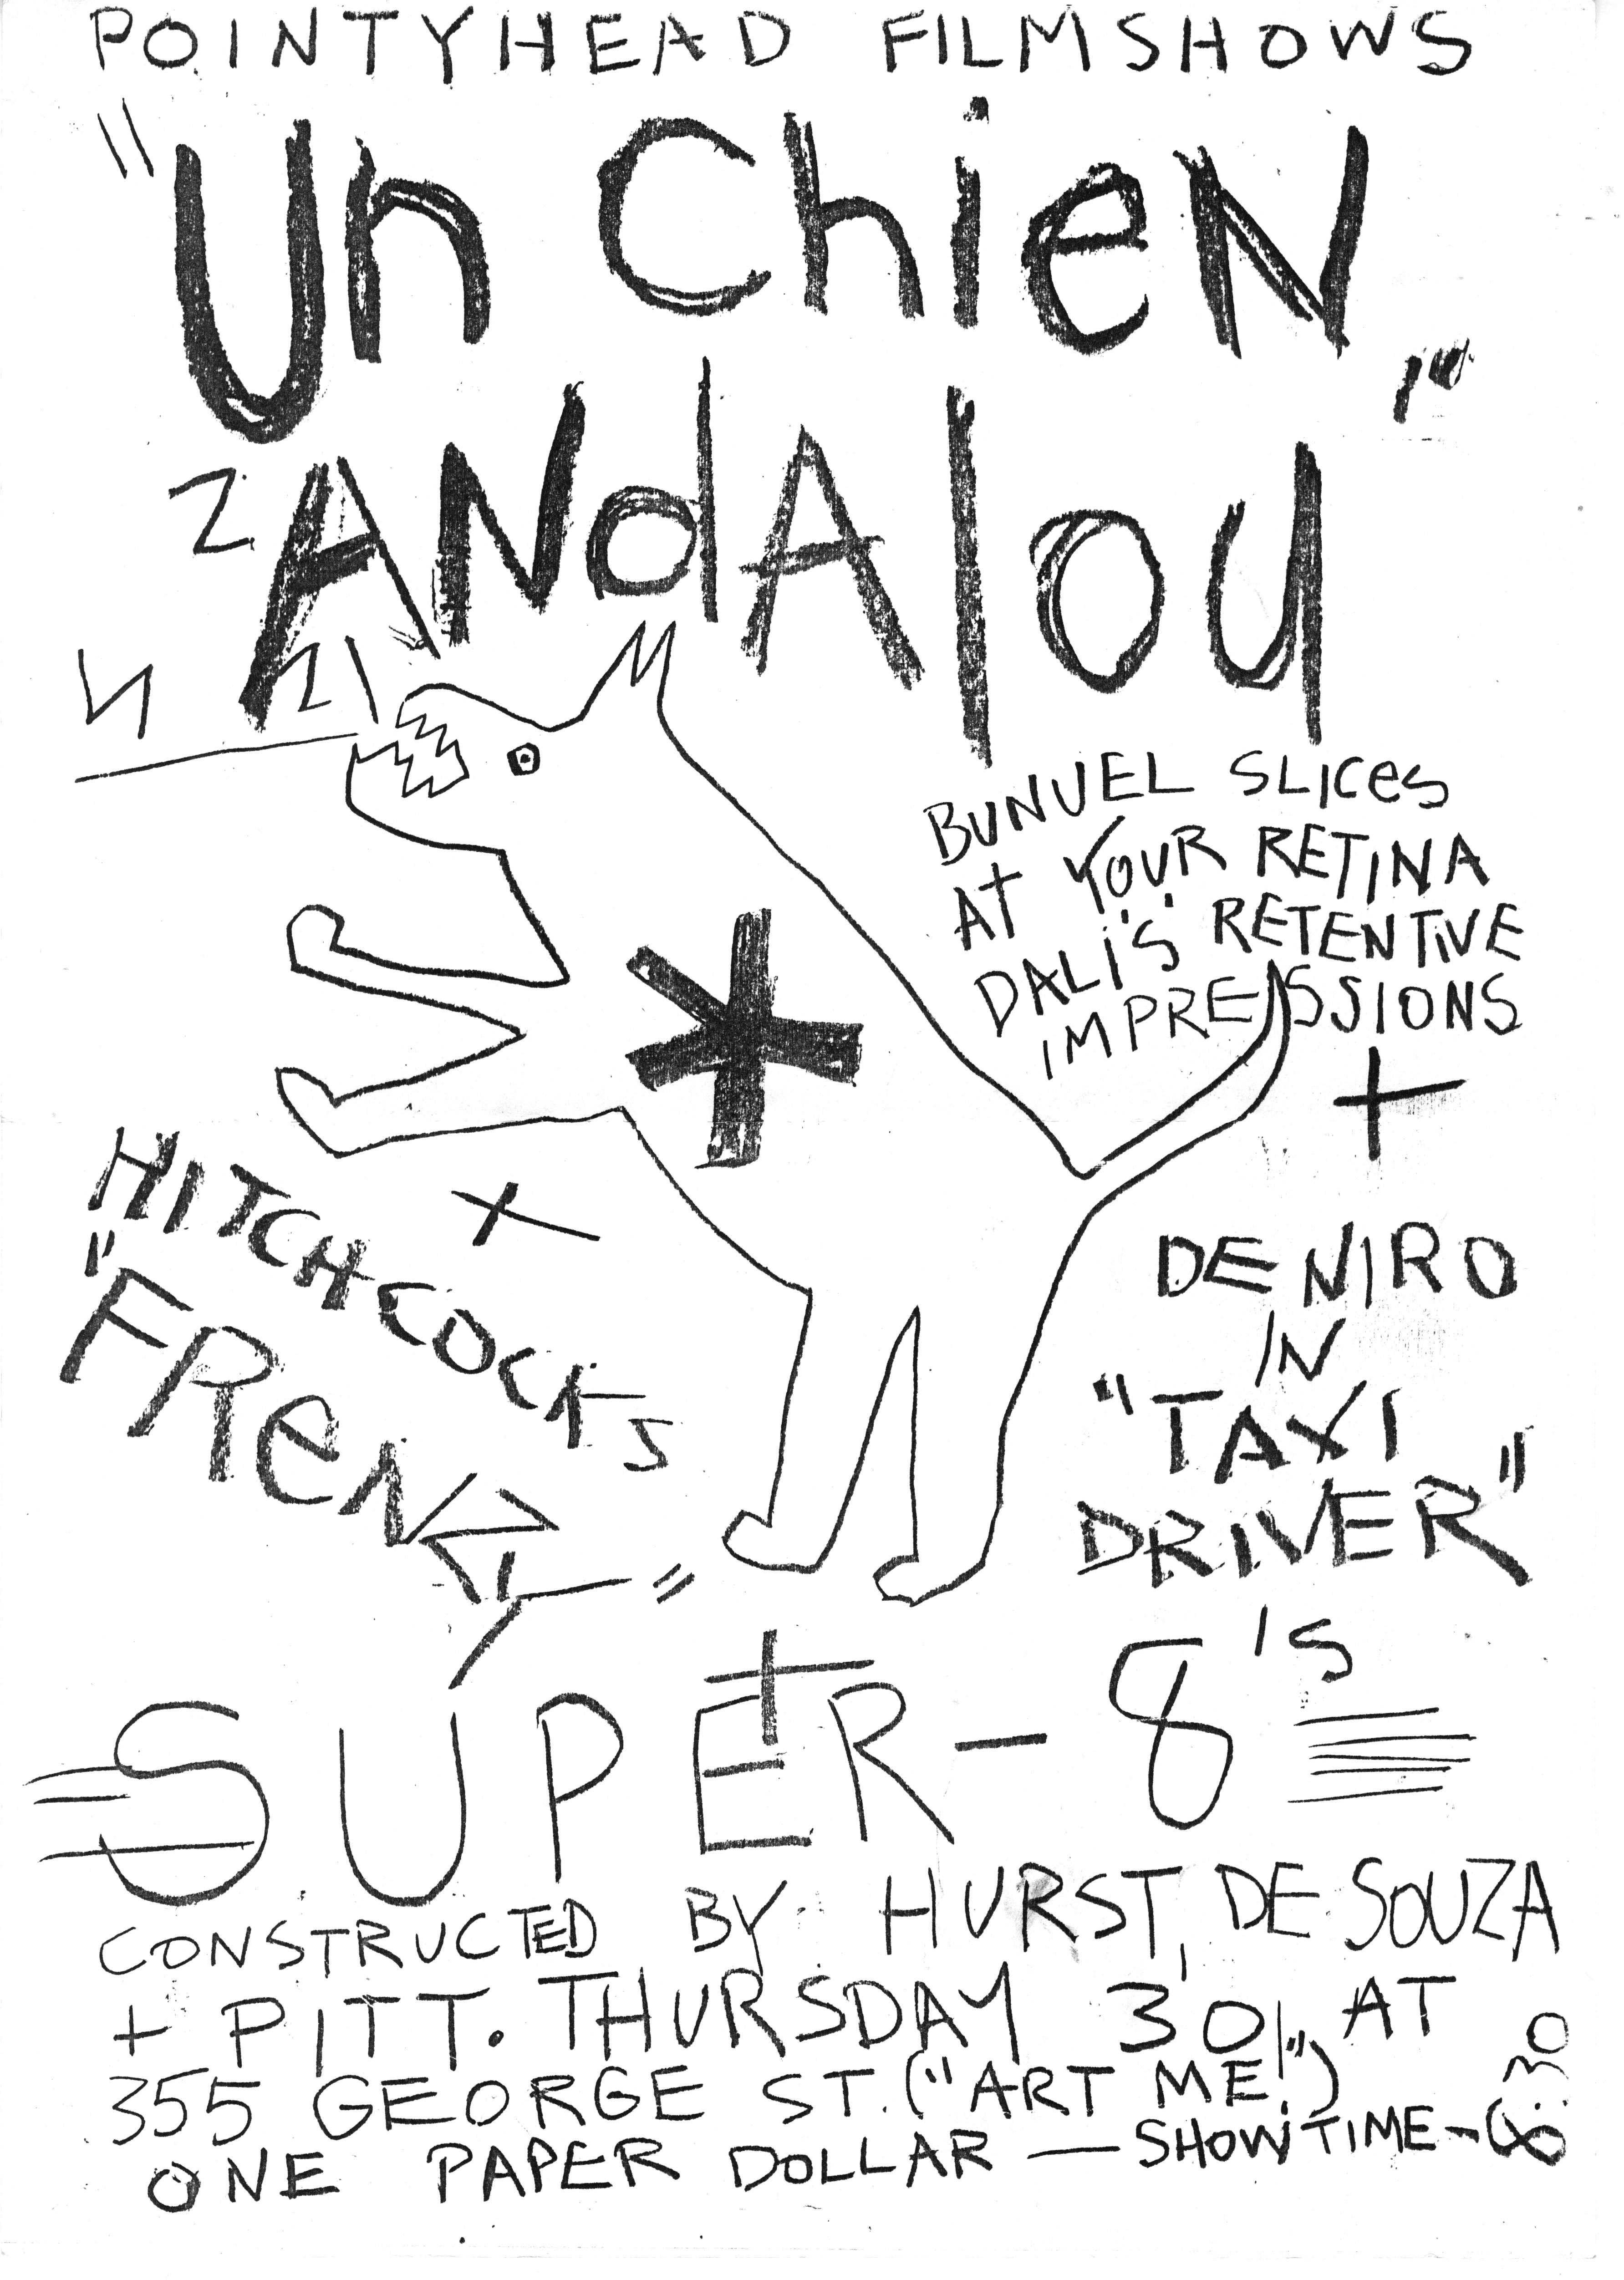 POINTYHEAD FILMSHOWS
"Un ChieN
ANdAlou"
Z
N
Z
BUNUEL SLICes
AT YOUR RETINA
DALI'S RETENTIVE
IMPRESSIONS
+
HITCHCOCK'S
"FReNZY"
+
DE NIRO
IN
"TAXI
DRIVER"
+
SUPER-8's
CONSTRUCTED BY HURST, DE SOUZA
+ PITT. THURSDAY 30 AT
355 GEORGE ST. ("ART ME!")
ONE PAPER DOLLAR — SHOWTIME - 8:30